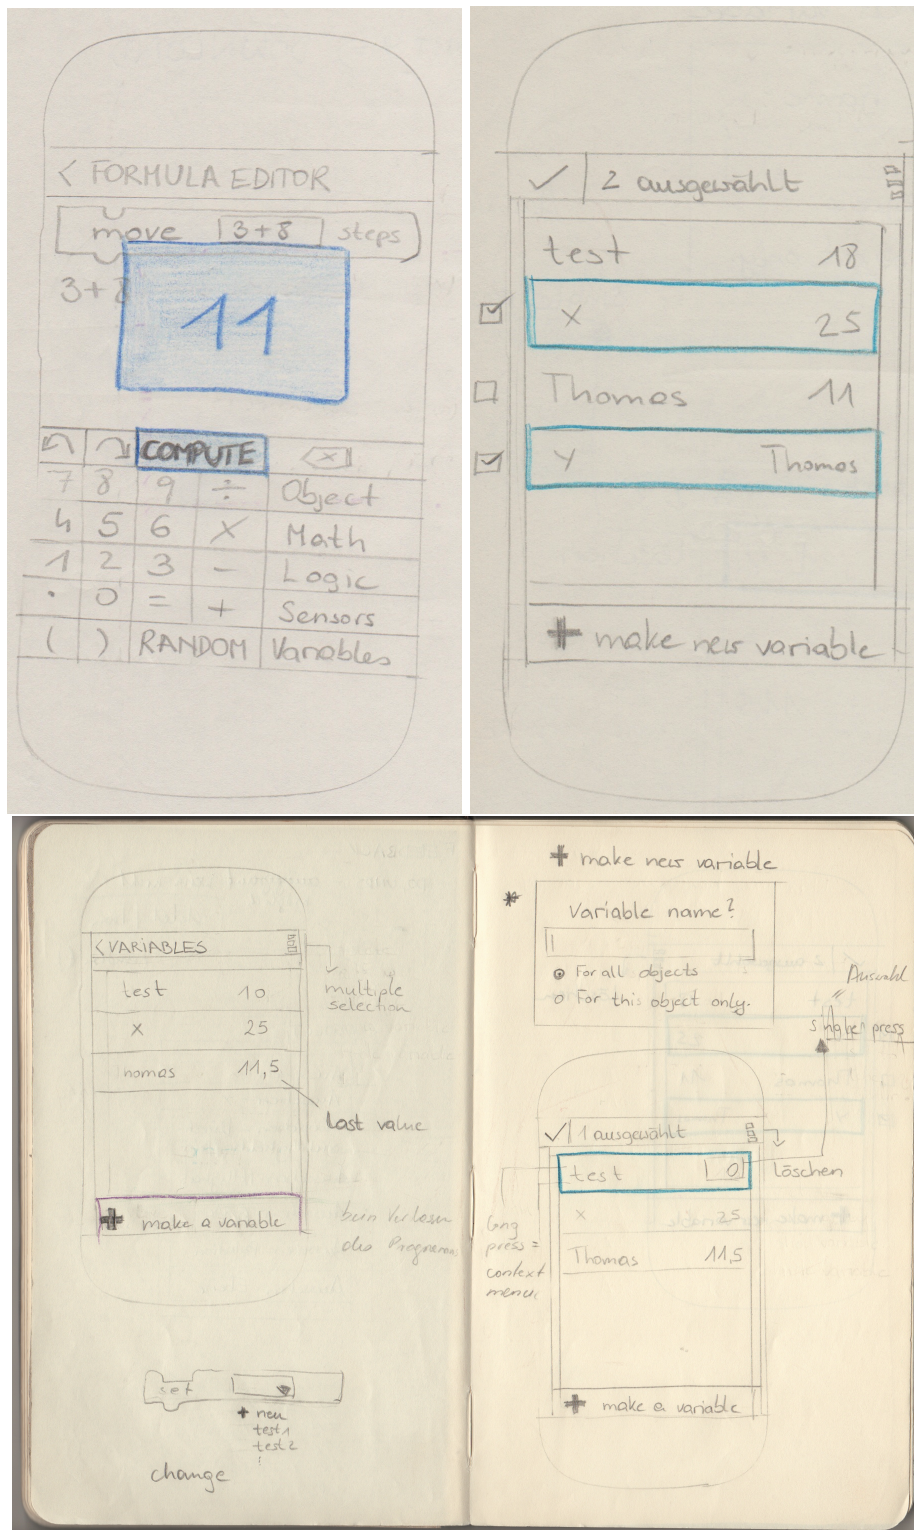 < FORMULA EDITOR
move 3+8 steps
3+8
11
COMPUTE
7 8 9 ÷ Object
4 5 6 × Math
1 2 3 - Logic
. 0 = + Sensors
( ) RANDOM Variables
2 ausgewählt
test 18
x 25
Thomas 11
y Thomas
+ make new variable
< VARIABLES
test 10
x 25
homas 11,5
multiple
selection
Last value
+ make a variable
beim Verlassen
des Programms
set
+ neu
test1
test2
change
+ make new variable
*
Variable name?
For all objects
For this object only.
Auswahl
press
1 ausgewählt
test 0
löschen
x 25
Thomas 11,5
long
press =
context
menu
+ make a variable